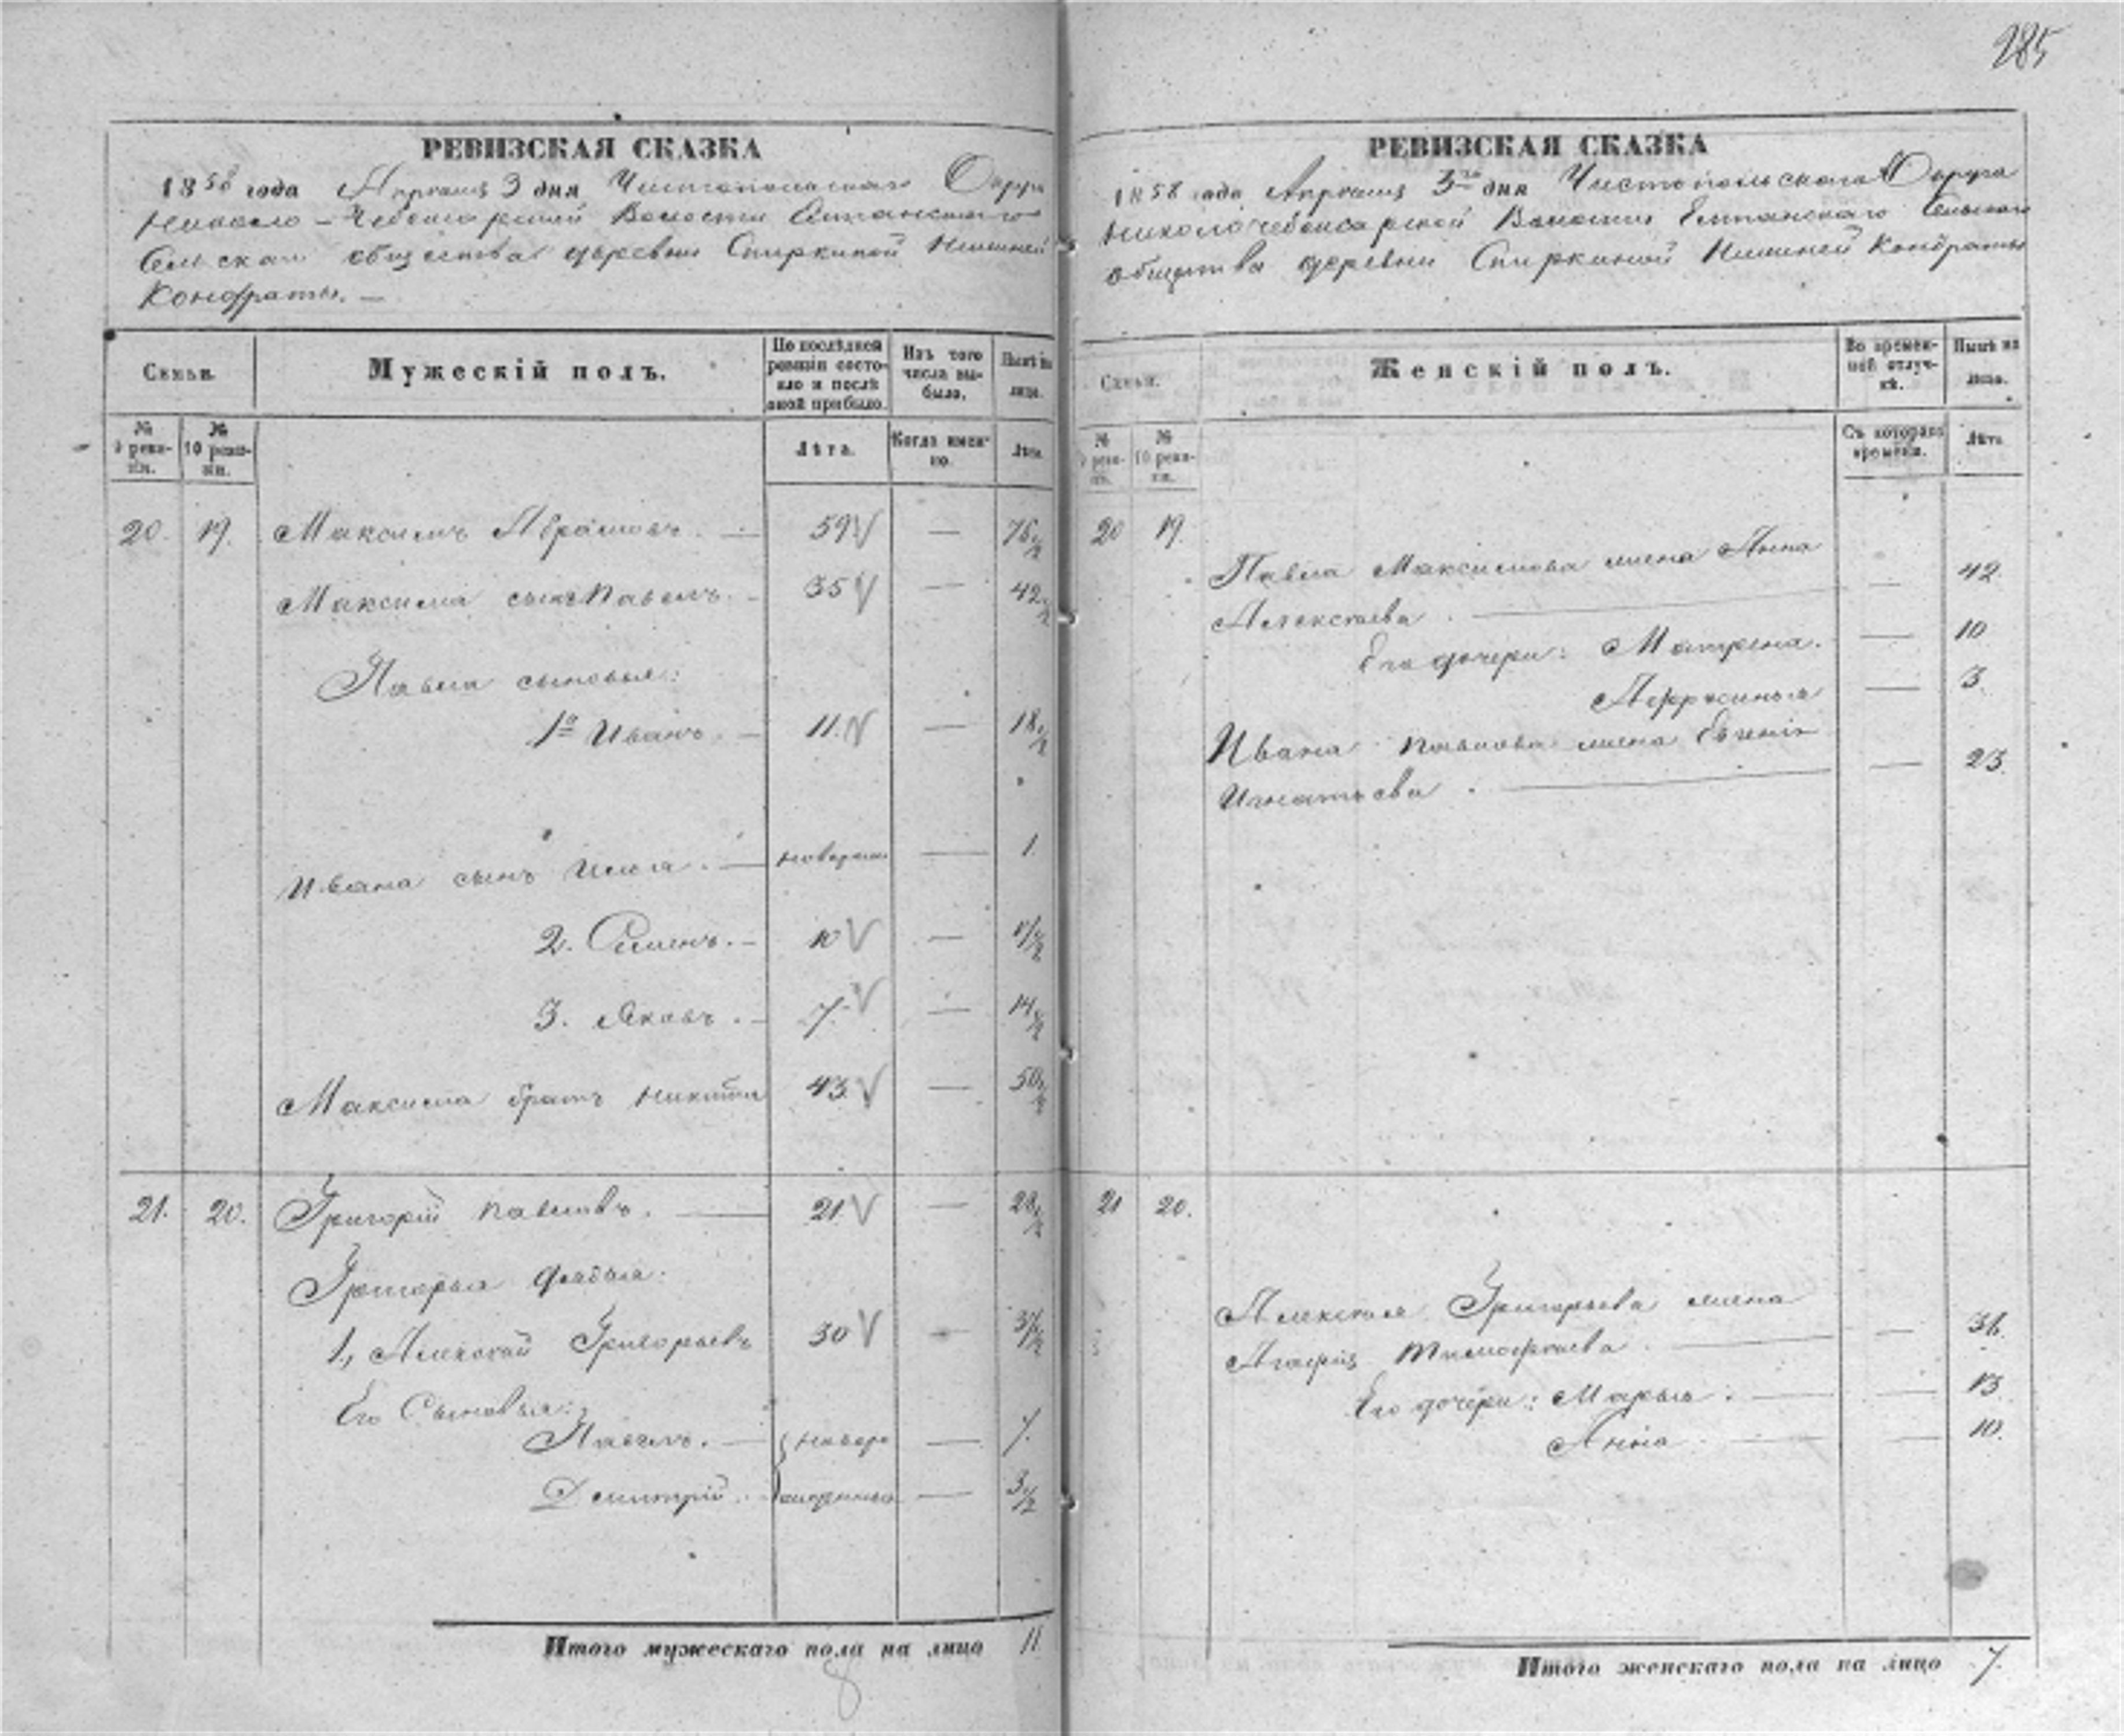 285
РЕВИЗСКАЯ СКАЗКА
1858 года Апреля 3 дня Чистопольскаго Округа
Николо-Чебоксарской Волости Елтанскаго
Сельскаго общества деревни Спиркиной Нижней
Кондраты. —
Семьи. Мужескій полъ. По послѣдней ревизіи состояло и послѣ оной прибыло. Изъ того числа выбыло. Нынѣ на лицо.
№ 9 ревизіи. № 10 ревизіи. Лѣта. Когда именно. Лѣта.
20. 19. Максимъ Абрамовъ. — 59 — 76 1/2
Максима сынъ Павелъ. — 35 — 42 1/2
Павла сыновья:
1й Иванъ. — 11 — 18 1/2
Ивана сынъ Илья. — новорож — 1.
2. Семенъ. — 10 — 17 1/2
3. Яковъ. — 7 — 14 1/2
Максима братъ Никита 43 — 50 1/2
21. 20. Григорій Павловъ. — 21 — 28 1/2
Григорья дядья:
1, Алексѣй Григорьевъ 30 — 37 1/2
Его Сыновья:
Павелъ. — новоро — 7.
Дмитрій. — жденные — 3 1/2
Итого мужескаго пола на лицо 11
8
РЕВИЗСКАЯ СКАЗКА
1858 года Апреля 3го дня Чистопольскаго Округа
Николочебоксарской Волости Елтанскаго Сельскаго
общества деревни Спиркиной Нижней Кондраты
Семьи. Женскій полъ. Во временной отлучкѣ. Нынѣ на лицо.
№ 9 ревизіи. № 10 ревизіи. Съ котораго времени. Лѣта.
20 19.
Павла Максимова жена Анна
Алексѣева. — 42.
Его дочери: Матрена. — 10
Афросинья — 3.
Ивана Павлова жена Евгенія
Игнатьева. — 23.
21 20.
Алексѣя Григорьева жена
Агафія Тимофѣева. — 36.
Его дочери: Марья. — 13.
Анна — 10.
Итого женскаго пола на лицо 7.